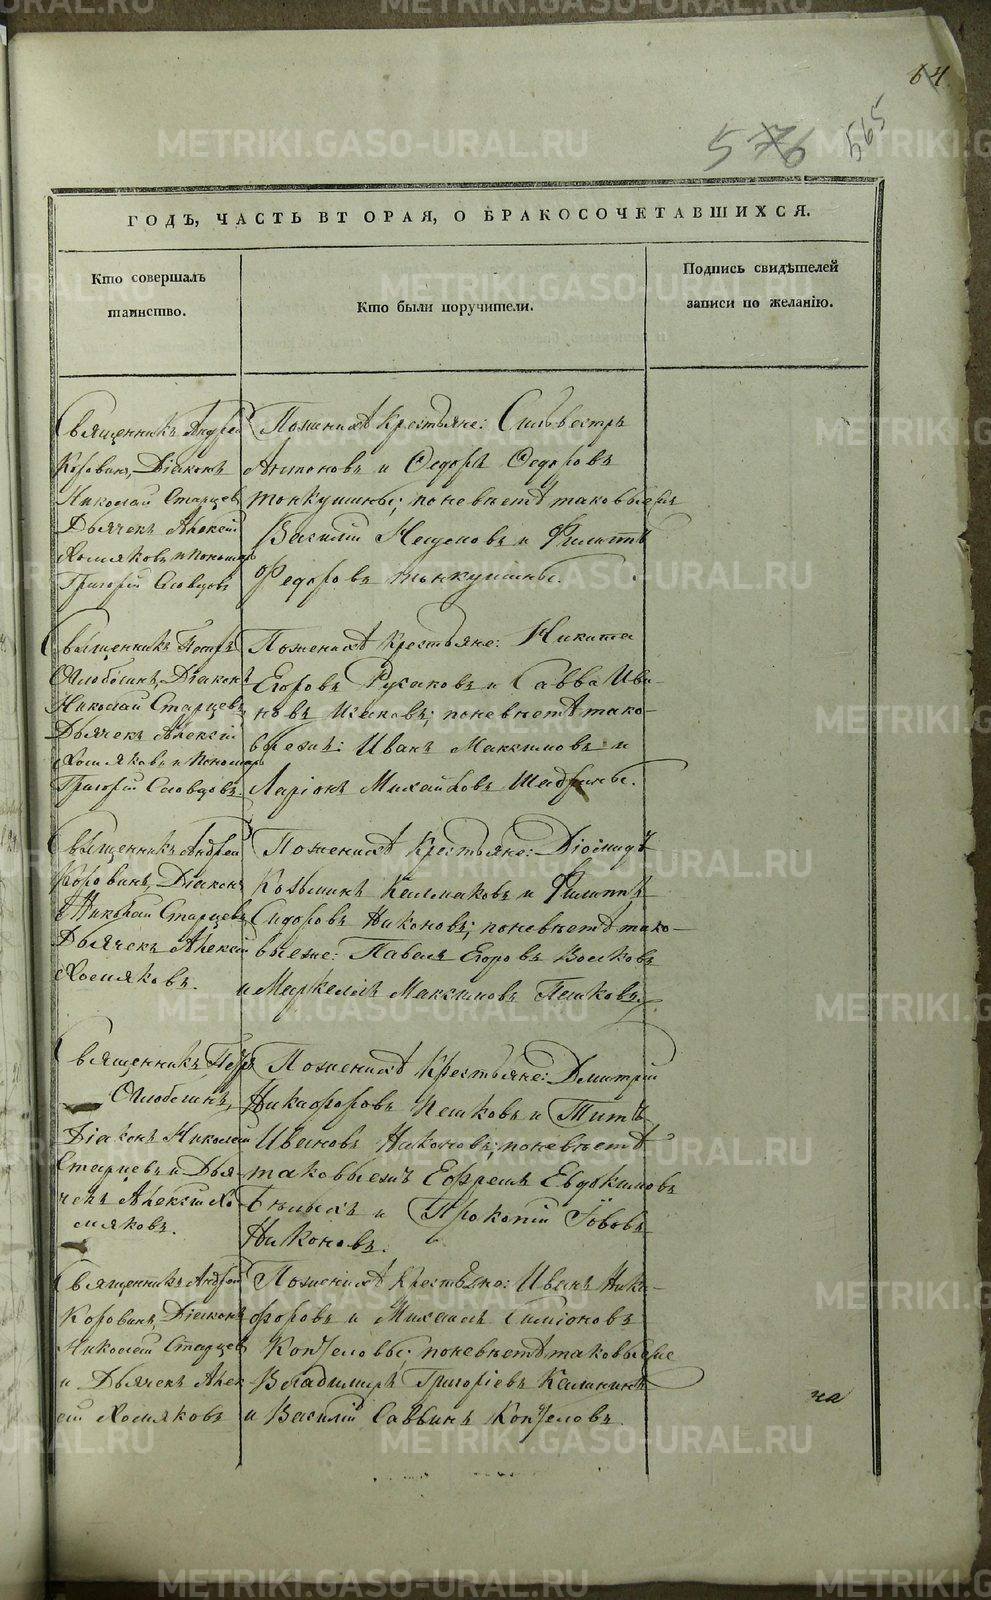 64
576
565
ГОДЪ, ЧАСТЬ ВТОРАЯ, О БРАКОСОЧЕТАВШИХСЯ.
Кто совершалъ
таинство.
Кто были поручители.
Подпись свидѣтелей
записи по желанію.
Священникъ Андрей
Коровинъ, Діаконъ
Николай Старцевъ
Дьячекъ Алексій
Хомяковъ и Пономарь
Григорій Словцовъ
По женихѣ Крестьяне: Сильвестръ
Антоновъ и Ѳедоръ Ѳедоровъ
по невѣстѣ таковыеже
Василій и Филиппъ
Федоровъ
Священникъ Петръ
Діаконъ
Николай Старцевъ
Дьячекъ Алексій
Хомяковъ и Пономарь
Григорій Словцовъ.
По женихѣ Крестьяне: Никита
Егоровъ Русаковъ и Савва Ива-
новъ по невѣстѣ тако-
выеже: Иванъ Максимовъ и
Ларіонъ Михайловъ Шадрины.
Священникъ Андрей
Коровинъ, Діаконъ
Николай Старцевъ
Дьячекъ Алексій
Хомяковъ.
По женихѣ Крестьяне: Діомидъ
Козьминъ Калмаковъ и Филиппъ
Сидоровъ Никоновъ; по невѣстѣ тако-
выеже: Павелъ Егоровъ Волковъ
и Маркеллъ Максимовъ Пешковъ.
Священникъ Петръ
Діаконъ Николай
Старцевъ и Дья-
чекъ Алексій Хо-
мяковъ.
По женихѣ Крестьяне: Дмитрій
Никифоровъ Пешковъ и Титъ
Ивановъ Никоновъ; по невѣстѣ
таковыежъ Ефремъ Евдокимовъ
Бѣлыхъ и Прокопій Іововъ
Никоновъ.
Священникъ Андрей
Коровинъ, Діаконъ
Николай Старцевъ
и Дьячекъ Алек-
сій Хомяковъ
По женихѣ Крестьяне: Иванъ Ники-
форовъ и Михаилъ Симіоновъ
по невѣстѣ таковыеже
Владимиръ Григорьевъ Калининъ
и Василій Саввинъ
на
METRIKI.GASO-URAL.RU